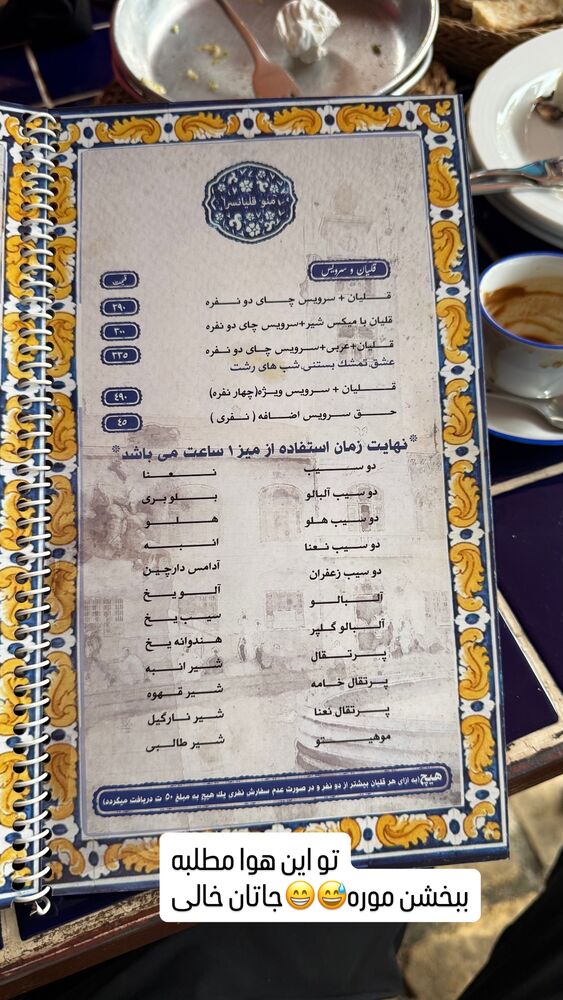 منو قلیانسرا
قلیان و سرویس
قیمت
قلیان + سرویس چای دو نفره
۲۹۰
قلیان با میکس شیر+سرویس چای دو نفره
۳۰۰
قلیان+عربی+سرویس چای دو نفره
۳۳۵
عشق.تمشك بستنی.شب های رشت
قلیان + سرویس ویژه(چهار نفره)
۴۹۰
حق سرویس اضافه ( نفری )
۴۵
*نهایت زمان استفاده از میز ۱ ساعت می باشد*
دو سیب
نعنا
دو سیب آلبالو
بلو بری
دو سیب هلو
هلو
دو سیب نعنا
انبه
دو سیب زعفران
آدامس دارچین
آلبالو
آلو یخ
آلبالو گلپر
سیب یخ
پرتقال
هندوانه یخ
پرتقال خامه
شیر انبه
پرتقال نعنا
شیر قهوه
موهیتو
شیر نارگیل
شیر طالبی
هیچ(به ازای هر قلیان بیشتر از دو نفر و در صورت عدم سفارش نفری یك هیچ به مبلغ ۵۰ ت دریافت میگردد)
تو این هوا مطلبه
ببخشن موره😅😁😁جاتان خالی